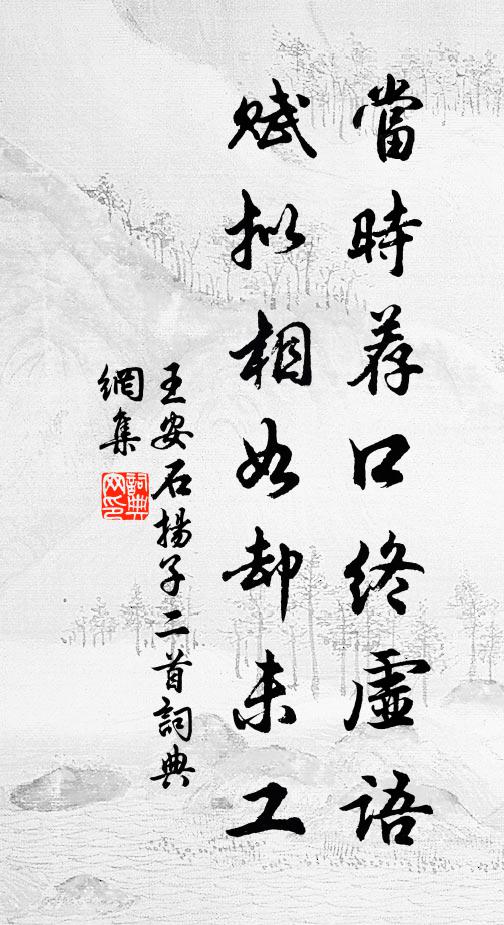 當時荐口終虛語
賦拟相如却未工
王安石揚子二首詞典
網集
詞典
网印